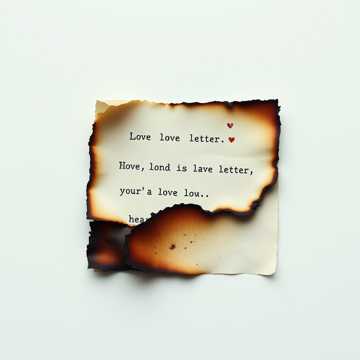 Love love letter.
Hove, lond is lave letter,
your'a love lou..
hea